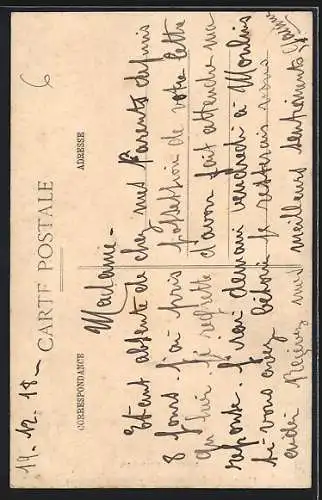 14.12.18 —
6
CARTE POSTALE
CORRESPONDANCE
ADRESSE
Madame —
Etant absente de chez mes Parents depuis
8 jours. j'ai pris possession de votre lettre
hier je regrette d'avoir fait attendre ma
reponse. J'irai demain vendredi à Moulins
si vous avez besoin je resterais vous
aider Recevez mes meilleurs sentiments